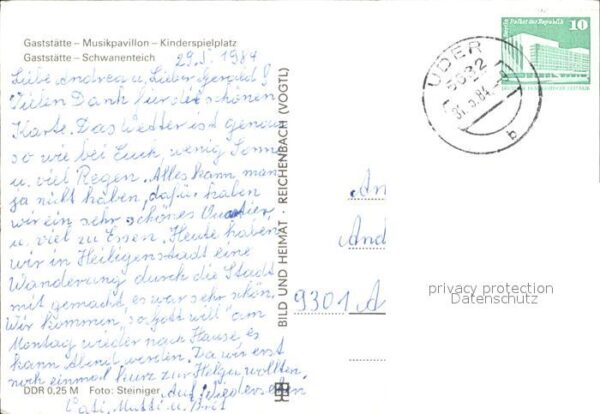 Gaststätte – Musikpavillon – Kinderspielplatz
Gaststätte – Schwanenteich
29.5.1984
Liebe Andrea u. Lieber Gerald!
Vielen Dank für die schönen
Karte. Das Wetter ist genau
so wie bei Euch, wenig Sonne
u. viel Regen. Alles kann man
ja nicht haben, dafür haben
wir ein sehr schönes Quartier
u. viel zu Essen. Heute haben
wir in Heiligenstadt eine
Wanderung durch die Stadt
mit gemacht, es war sehr schön.
Wir kommen "so Gott will" am
Montag wieder nach Hause, es
kann Abend werden. Da wir erst
noch einmal kurz zur Helga wollten.
Auf Wiedersehen
Vati, Mutti u.
DDR 0,25 M Foto: Steiniger
BILD UND HEIMAT · REICHENBACH (VOGTL)
UDER
5632
31.5.84
b
Berlin Palast der Republik
10
An
And
9301 A
privacy protection
Datenschutz